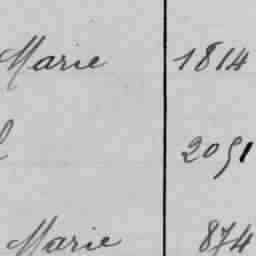 Marie 1814
2051
Marie 874